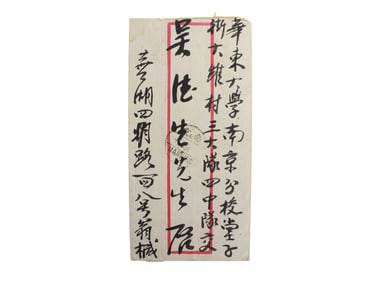 華東大學南京分校堂子
街大雅村三大隊四中隊交
吴德生先生啓
蕪湖四明路可八号翁械